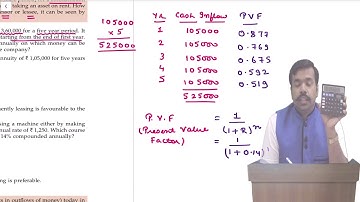 making an asset on rent. How
lessor or lessee, it can be seen by
3,60,000 for a five year period. It
starting from the end of first year.
annually on which money can be
e company?
annuity of ₹ 1,05,000 for five years
ently leasing is favourable to the
using a machine either by making
nual rate of ₹ 1,250. Which course
14% compounded annually?
ng is preferable.
s in outflows of money) today in
105000
× 5
525000
Yr Cash Inflow P.V.F
1 105000 0.877
2 105000 0.769
3 105000 0.675
4 105000 0.592
5 105000 0.519
525000
P.V.F = 1
(1+R)^n
(Present Value
Factor) = 1
(1+0.14)^1